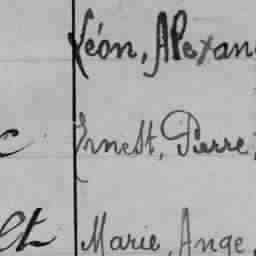 Léon, Alexan
Ernest, Pierre,
Marie, Ange,